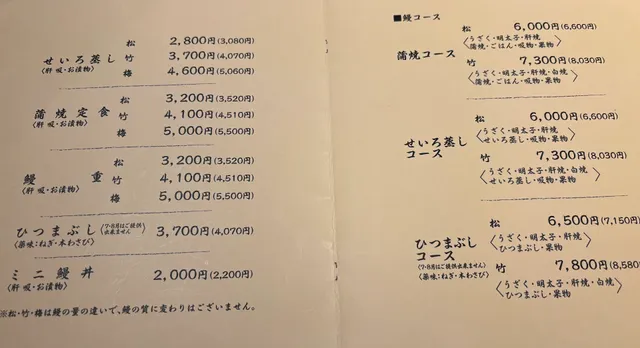 せいろ蒸し
(肝吸・お漬物)
松 2,800円(3,080円)
竹 3,700円(4,070円)
梅 4,600円(5,060円)
蒲焼定食
(肝吸・お漬物)
松 3,200円(3,520円)
竹 4,100円(4,510円)
梅 5,000円(5,500円)
鰻重
(肝吸・お漬物)
松 3,200円(3,520円)
竹 4,100円(4,510円)
梅 5,000円(5,500円)
ひつまぶし (7・8月はご提供出来ません) 3,700円(4,070円)
(薬味:ねぎ・本わさび)
ミニ鰻丼 2,000円(2,200円)
(肝吸・お漬物)
※松・竹・梅は鰻の量の違いで、鰻の質に変わりはございません。
■鰻コース
蒲焼コース
松 6,000円(6,600円)
〈うざく・明太子・肝焼
蒲焼・ごはん・吸物・果物〉
竹 7,300円(8,030円)
〈うざく・明太子・肝焼・白焼
蒲焼・ごはん・吸物・果物〉
せいろ蒸し
コース
松 6,000円(6,600円)
〈うざく・明太子・肝焼
せいろ蒸し・吸物・果物〉
竹 7,300円(8,030円)
〈うざく・明太子・肝焼・白焼
せいろ蒸し・吸物・果物〉
ひつまぶし
コース
(7・8月はご提供出来ません)
(薬味:ねぎ・本わさび)
松 6,500円(7,150円)
〈うざく・明太子・肝焼
ひつまぶし・果物〉
竹 7,800円(8,580
〈うざく・明太子・肝焼・白焼
ひつまぶし・果物〉